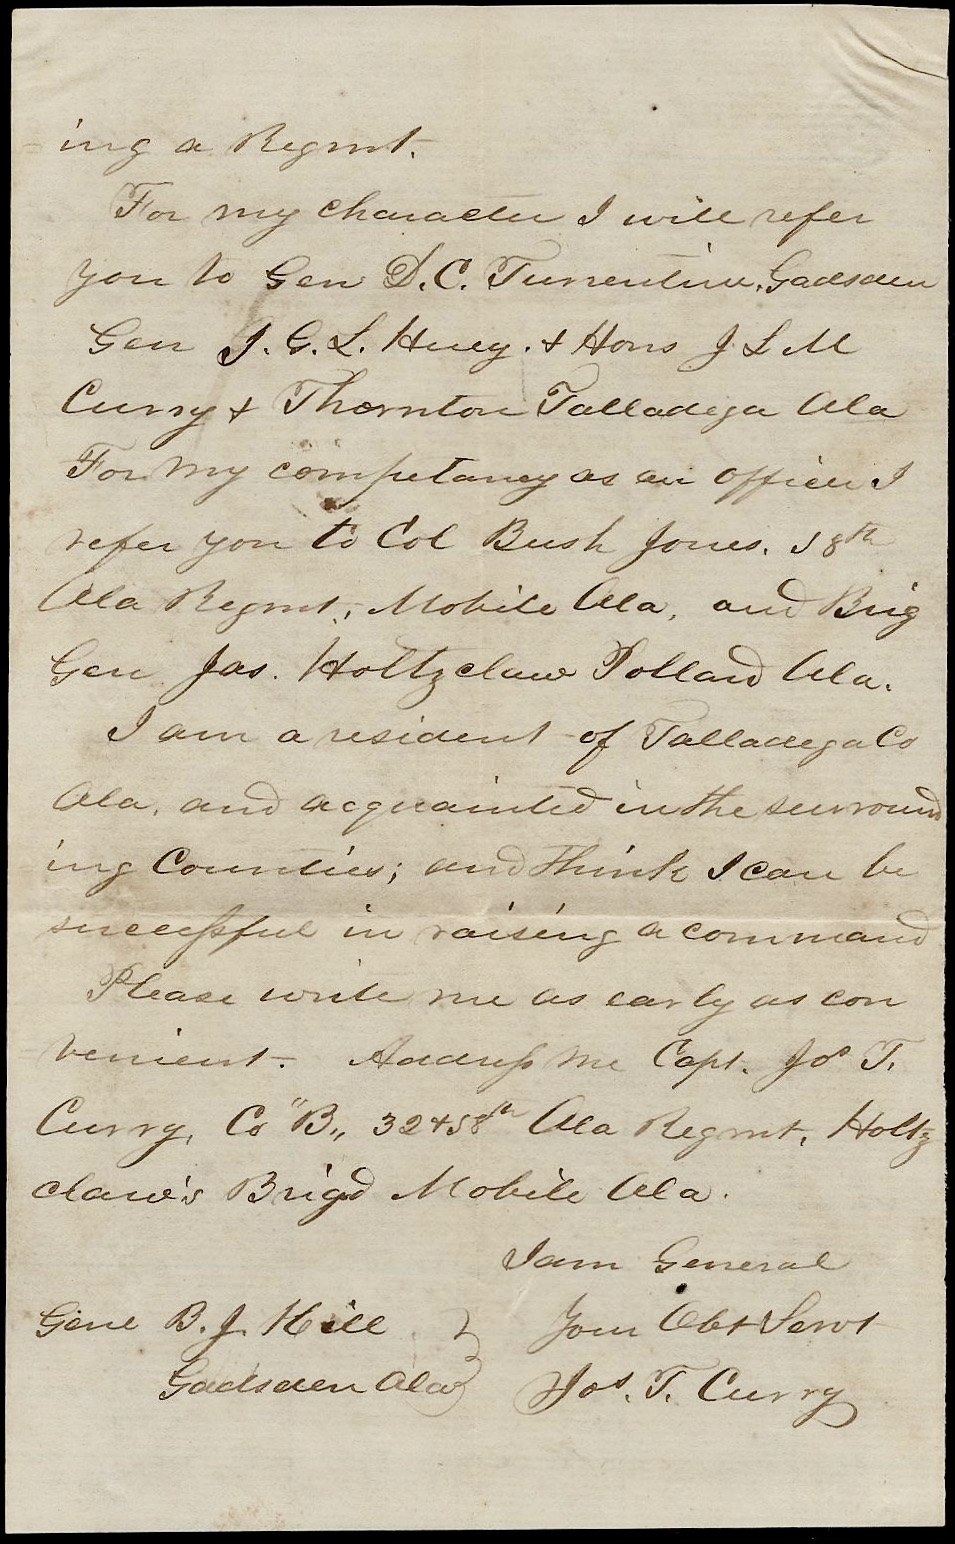 ing a Regmt.
For my character I will refer
you to Gen D. C. Turrentine, Gadsden
Gen J. G. L. Huey. & Hons J L M
Curry & Thornton Talladega Ala
For my competancy as an officer I
refer you to Col Bush Jones. 58th
Ala Regmt, Mobile Ala, and Brig
Gen. Jas. Holtzclaw Pollard Ala.
I am a resident of Talladega Co
Ala. and acquainted in the surround
ing Counties; and think I can be
successful in raising a command
Please write me as early as con
venient. Address me Capt. Jos T.
Curry, Co "B„ 32 & 58th Ala Regmt. Holtz
claw's Brigd Mobile Ala.
I am General
Your Obt Servt
Jos. T. Curry
Genl B. J. Hill
Gadsden Ala